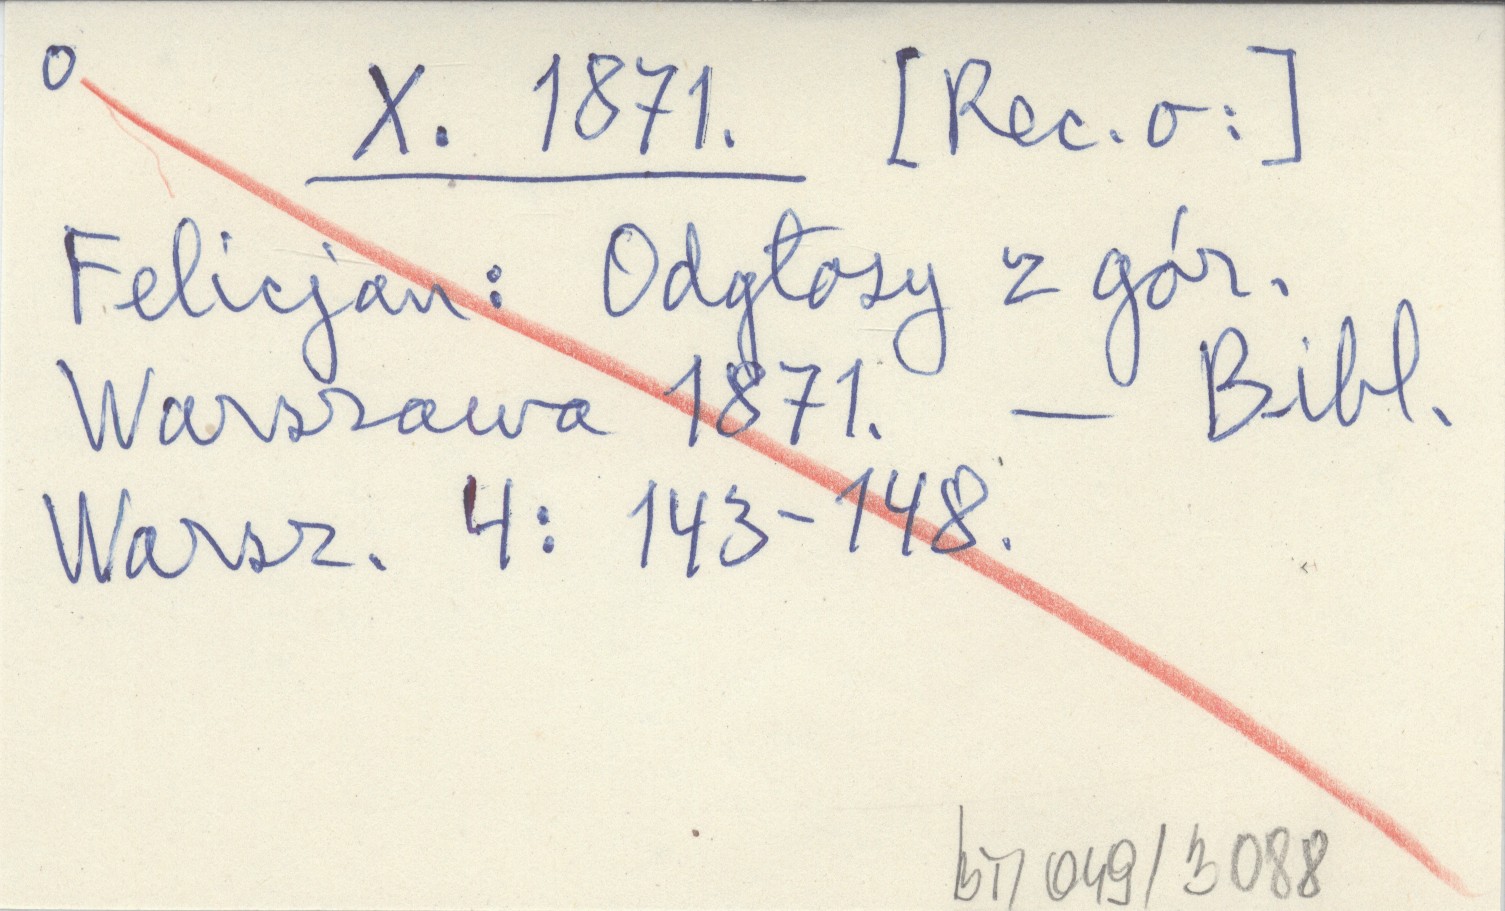 o
X. 1871. [Rec. o:]
Felicjan: Odgłosy z gór.
Warszawa 1871. — Bibl.
Warsz. 4: 143-148.
049/3088